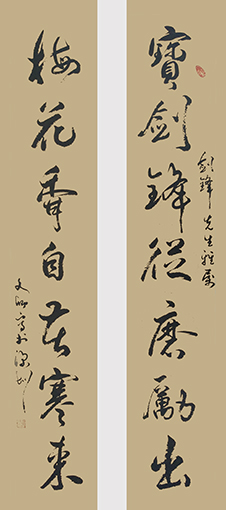 寶劍鋒從磨勵出
劍鋒先生雅屬
梅花香自苦寒來
文 寫於深圳